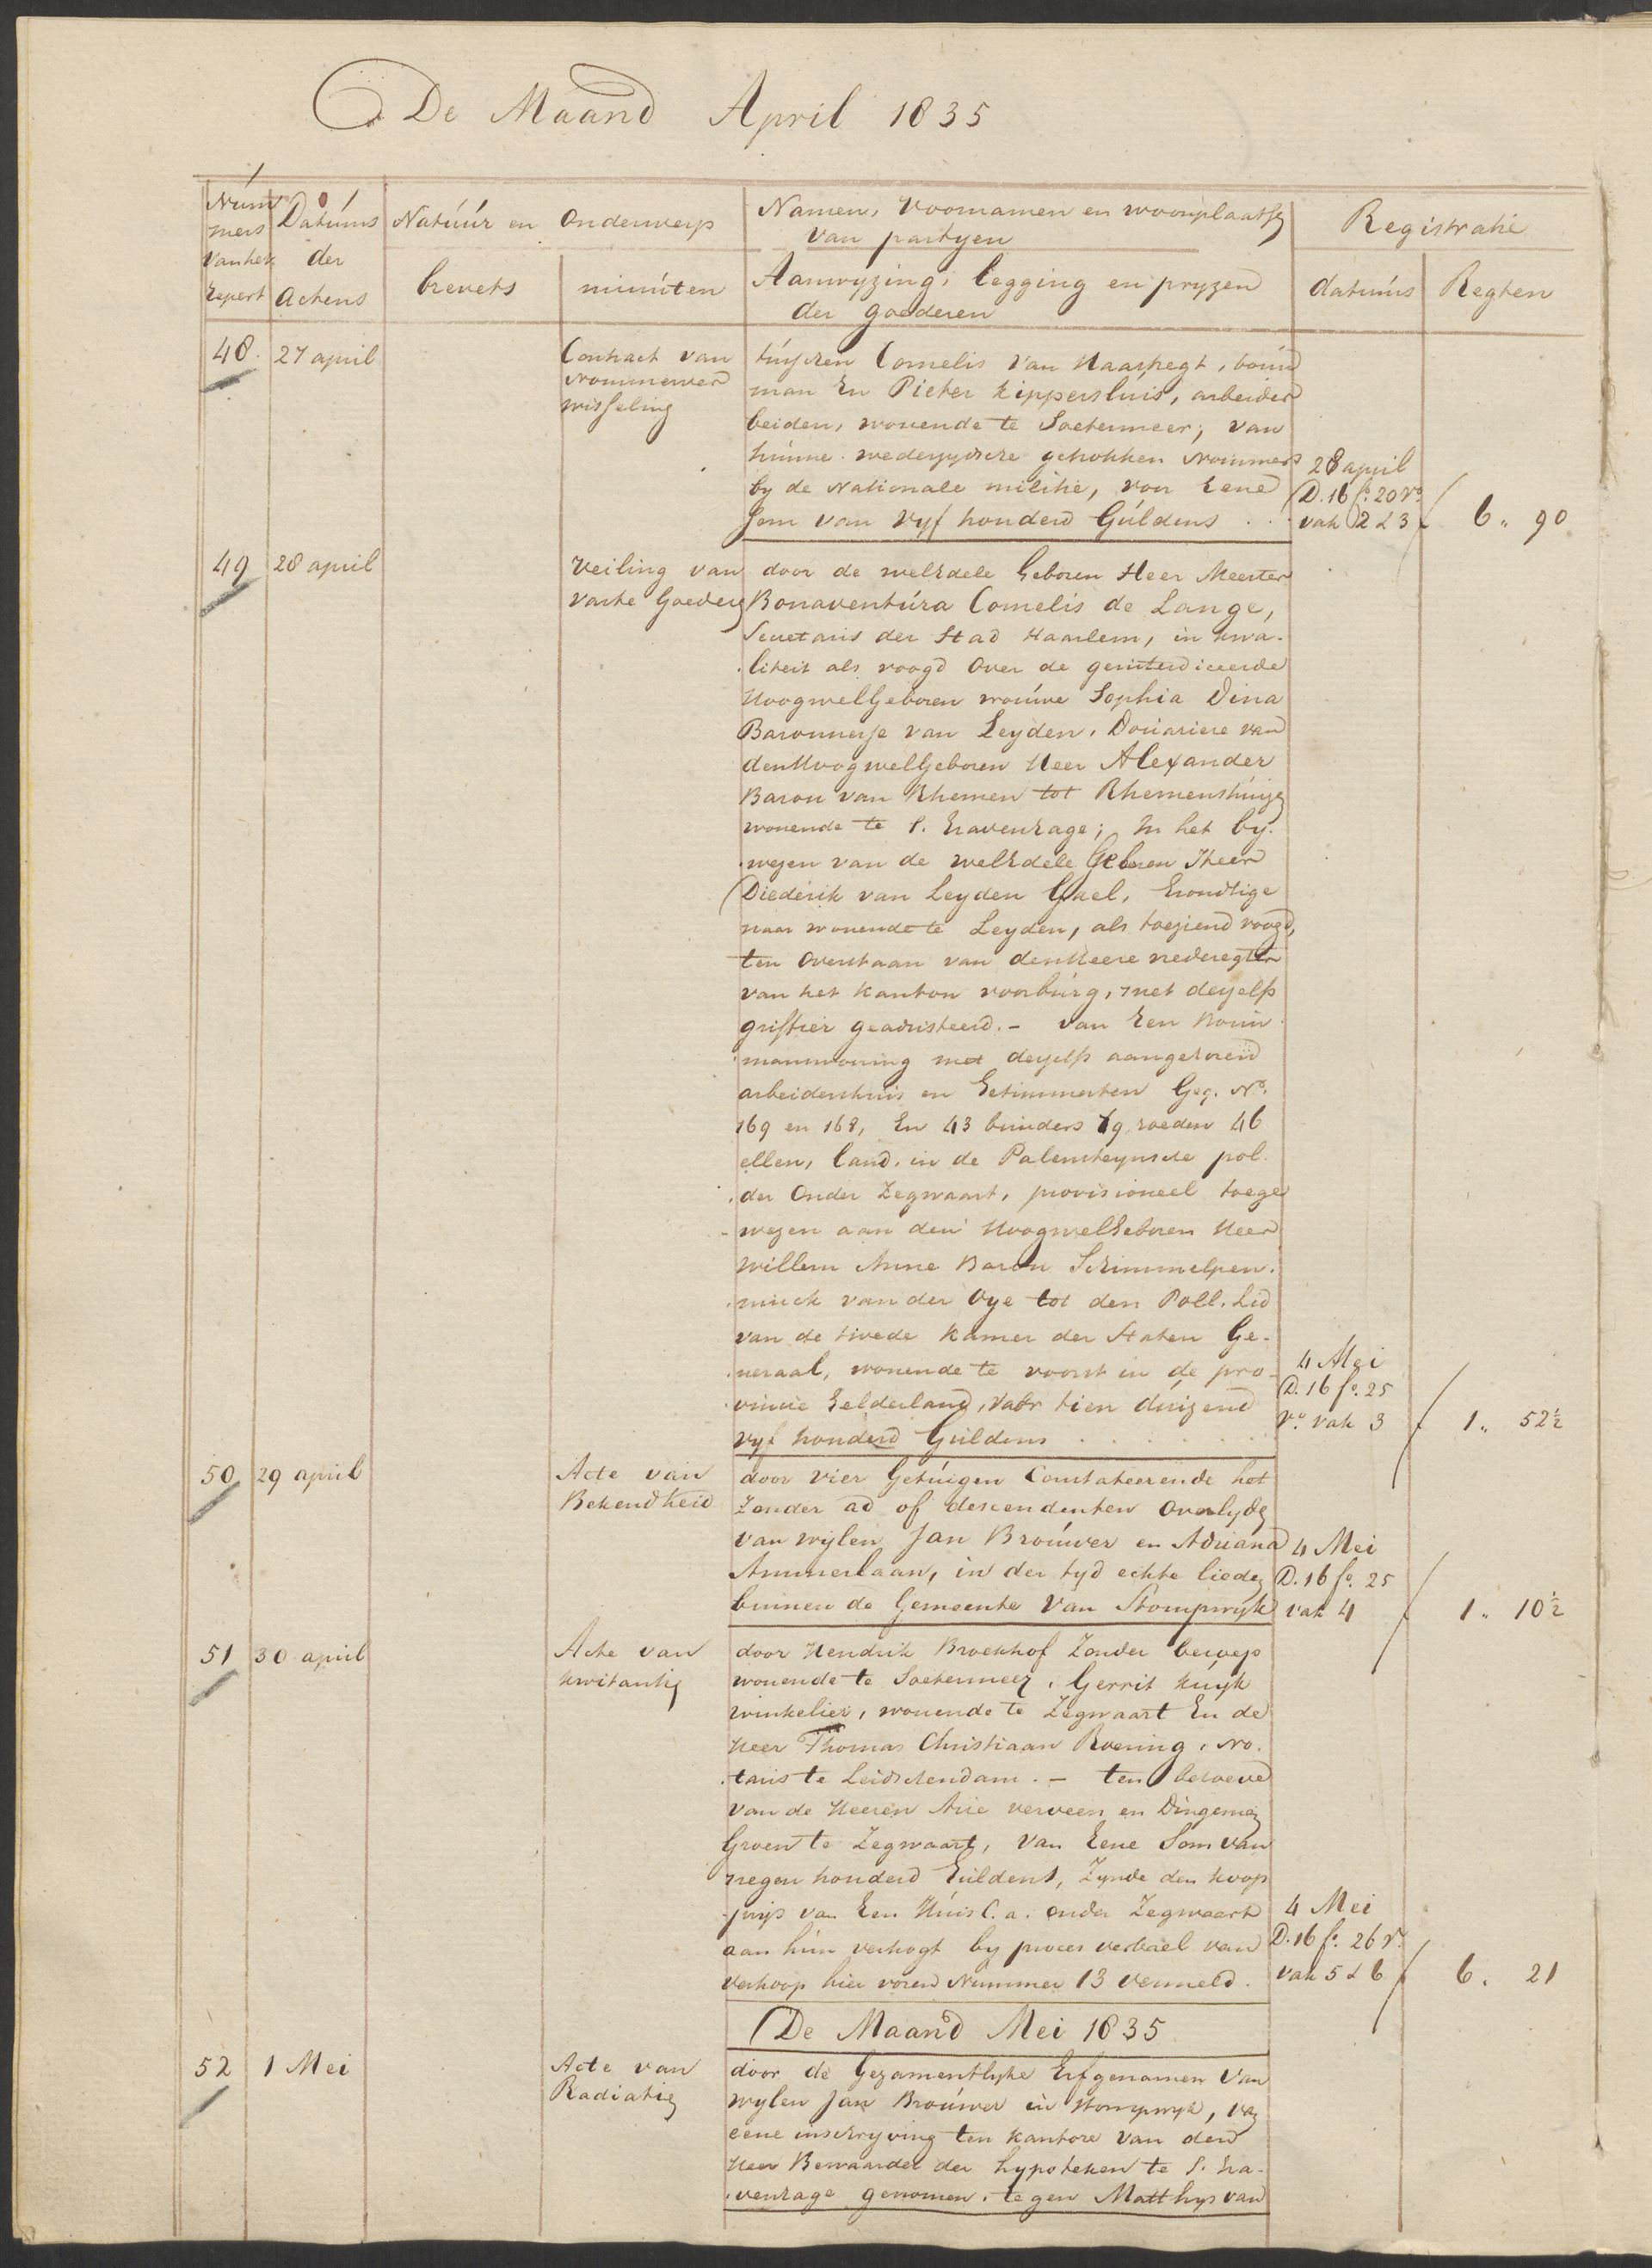 De Maand April 1835
Num
mers
van het
Repert
Datúms
der
Actens
Natúúr en Onderwerp
brevets
minúten
Namen, Voornamen en woonplaatsen
van partyen
Aanwyzing, legging en pryzen
der goederen
Registratie
datúms
Regten
48. 27 april
Contract van
Nommerver
wisseling
tússchen Cornelis van Haastregt, boúw
man En Pieter Kippersluis, arbeider
beiden, wonende te Soetermeer; van
húnne wederzydsche getrokken Nommers
by de Nationale militie, voor Eene
Som van Vyf honderd Gúldens . .
28 april
D. 16 fo. 20 Vo.
vak 2 & 3
6 " 90
49 28 april
Veiling van
Vaste Goederen
door de welEdele Geboren Heer Meester
Bonaventúra Cornelis de Lange,
Secretaris der Stad Haarlem, in kwa-
liteit als voogd Over de geinterdiceerde
HoogwelGeboren vroúwe Sophia Dina
Baronnesse van Leyden, Doúariere van
den HoogwelGeboren Heer Alexander
Baron van Rhemen tot Rhemenshúizen
wonende te S. Gravenhage; In het by-
wezen van de welEdele Geboren Heer
Diederik van Leyden Gael, Grondeige
naar wonende te Leyden, als toeziend voogd,
ten Overstaan van den Heere vrederegter
van het Kanton voorbúrg, met deszelfs
griffier geadsisteerd. - van Een Boúw
manwoning met deszelfs aangehorend
arbeidershuis en Getimmerten Geq. No.
169 en 168, En 43 bunders 79 roeden 46
ellen, land, in de Palensteynsche pol-
der Onder Zegwaart, provisioneel toege
wezen aan den HoogwelGeboren Heer
Willem Anne Baron Schimmelpen-
ninck van der Oye tot den Poll, Lid
van de tweede Kamer der Staten Ge-
neraal, wonende te voorst in de pro-
vincie Gelderland, voor tien duizend
vyf honderd Guldens . . . . . .
4 Mei
D. 16 fo. 25
Vo. vak 3
1 " 52½
50 29 april
Acte van
Bekendheid
door vier Getúigen Constateerende het
Zonder ad of descendenten Overlyden
van wylen Jan Broúwer en Adriana
Ammerlaan, in der tyd echte lieden
binnen de Gemeente van Stompwyk
4 Mei
D. 16 fo. 25
vak 4
1 " 10½
51 30 april
Acte van
kwitantie
door Hendrik Broekhof Zonder beroep
wonende te Soetermeer, Gerrit Kúyk
winkelier, wonende te Zegwaart En de
Heer Thomas Christiaan Roering, No-
taris te Leidschendam. - ten behoeve
van de Heeren Arie verveen en Dingeman
Groen te Zegwaart, van Eene Som van
negen honderd Guldens, Zynde den koop
prijs van Een Húis C. a. onder Zegwaart
aan hún verkogt by proces verbael van
verkoop hier voren Nummer 13 vermeld.
4 Mei
D. 16 fo. 26 Vo.
vak 5 & 6
6 . 21
De Maand Mei 1835
52 1 Mei
Acte van
Radiatie
door de Gezamentlyke Erfgenamen van
wylen Jan Broúwer in Stompwyk, van
eene inschryving ten kantore van den
Heer Bewaarder der hypoteken te S. Gra-
venhage genomen, tegen Matthys van